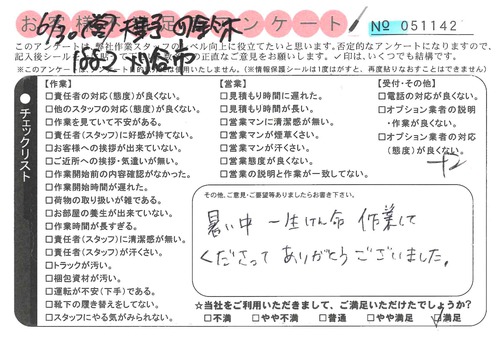 お客様大満足アンケート
№ 051142
このアンケートは、弊社作業スタッフのレベル向上に役立てたいと思います。否定的なアンケートになりますので、
記入後シールを貼って の正直なご意見をお願いします。✓印は、いくつでも結構です。
チェックリスト
【作業】
□責任者の対応(態度)が良くない。
□他のスタッフの対応(態度)が良くない。
□作業を見ていて不安がある。
□責任者(スタッフ)に好感が持てない。
□お客様への挨拶が出来ていない。
□ご近所への挨拶・気遣いが無い。
□作業開始前の内容確認がなかった。
□作業開始時間が遅れた。
□荷物の取り扱いが雑である。
□お部屋の養生が出来ていない。
□作業時間が長すぎる。
□責任者(スタッフ)に清潔感が無い。
□責任者(スタッフ)が汗くさい。
□トラックが汚い。
□梱包資材が汚い。
□運転が不安(下手)である。
□靴下の履き替えをしてない。
□スタッフにやる気がみられない。
【営業】
□見積もり時間に遅れた。
□見積もり時間が長い。
□営業マンに清潔感が無い。
□営業マンが煙草くさい。
□営業マンが汗くさい。
□営業態度が良くない。
□営業の説明と作業が一致してない。
【受付・その他】
□電話の対応が良くない。
□オプション業者の説明
・作業が良くない。
□オプション業者の対応
(態度)が良くない。
その他、ご意見・ご要望等ありましたらお書き下さい。
暑い中 一生けん命 作業して
くださって ありがとうございました。
☆当社をご利用いただきまして、ご満足いただけたでしょうか?
□不満 □やや不満 □普通 □やや満足 ☑満足